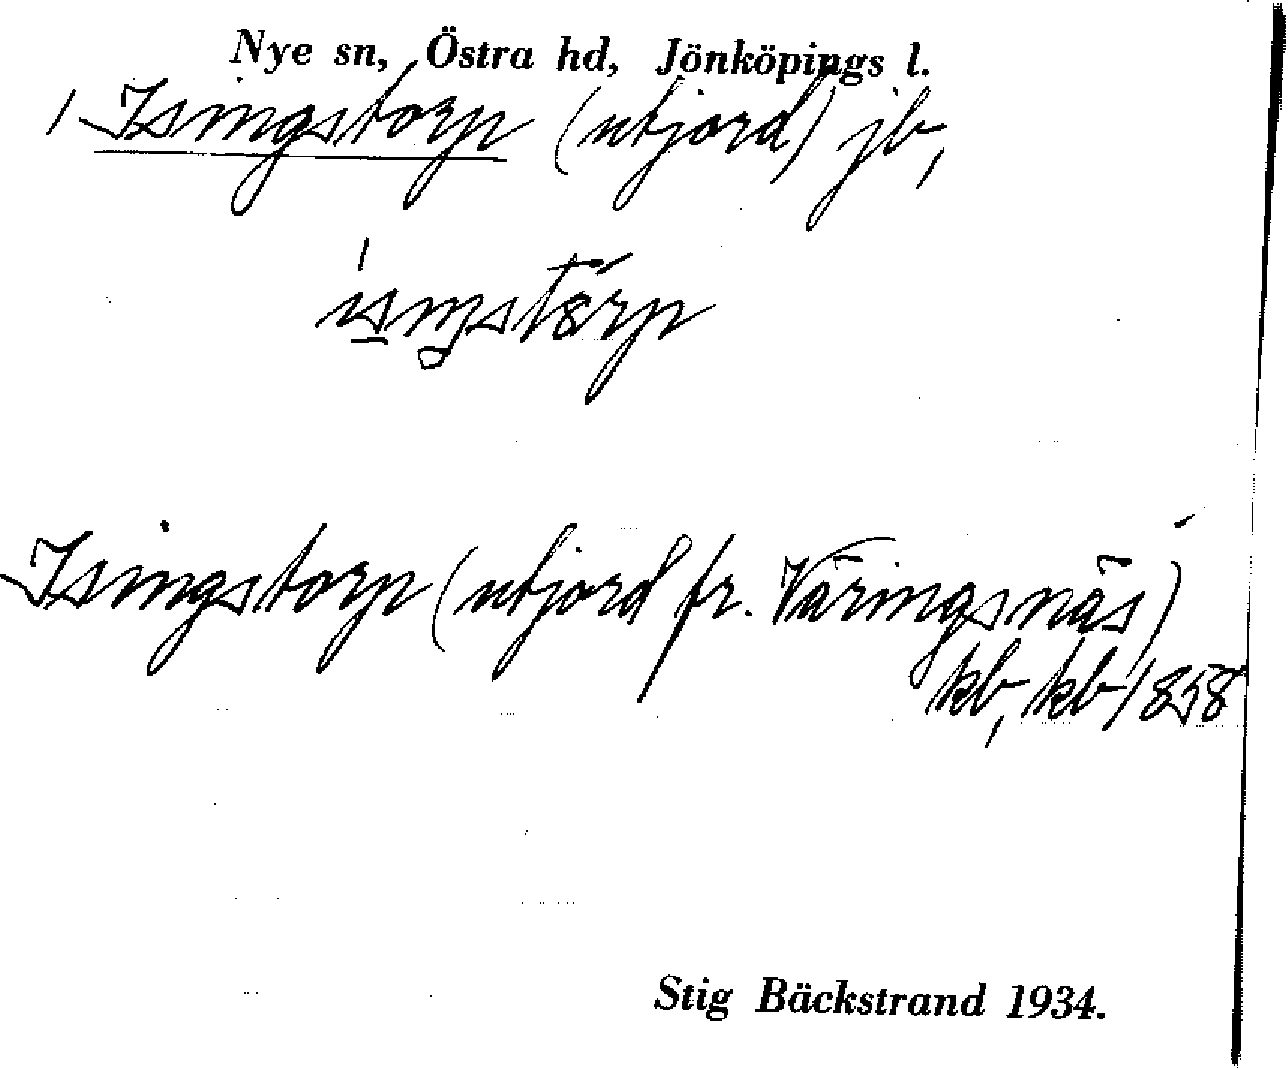 Nye sn, Östra hd, Jönköpings l.
Isingstorp (utjord) jb,
Isingstorp (utjord fr. Väringsnäs)
kb, kb 1858
Stig Bäckstrand 1934.